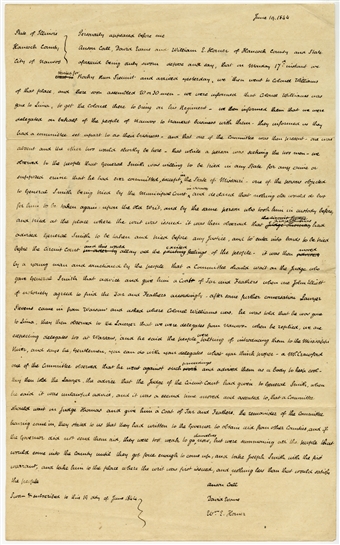 June 19, 1844
State of Illinois
Hancock County
City of Nauvoo
Personally appeared before me
Anson Call, David Evans and William E. Horner of Hancock County and State
aforesaid being duly sworn depose and say, that on Monday 17th instant we
Rocky Run Precinct and arrived yesterday, we then went to Colonel Williams
of that place and there was assembled 20 or 30 men. - we were informed that Colonel Williams was
gone to Lima, to get the Colonel there to bring on his Regiment - we then informed them that we were
delegated on behalf of the people of Nauvoo to transact business with them - they informed us they
had a committee set apart to do their business, and that one of the Committee was then present - one was
absent and the other two would shortly be here - that while a person was asking the two men - we
observed to the people that General Smith was willing to be tried in any State for any crime or
supposed crime that he had ever committed, except the State of Missouri. - one of the persons objected
to General Smith being tried by the Municipal Court, and declared that nothing else would do but
for him to be taken again upon the old Writ, and by the same person who took him in custody before,
and tried at the place where the writ was issued. it was then observed that
had advised General Smith to be taken and tried before any Justice, and to enter into bonds to be tried
before the Circuit Court and this would allay the excited feelings of the people. - it was then moved
by a young man and sanctioned by the people that a Committee should wait on the Judge who
gave General Smith that advice and give him a Coat of Tar and Feathers when one John Elliott
of notoriety agreed to find the Tar and Feathers accordingly. after some further conversation Lawyer
Stevens came in from Warsaw and asked where Colonel Williams was, he was told that he was gone
to Lima, they then observed to the Lawyer that we were delegates from Nauvoo when he replied, we are
expecting delegates too at Warsaw, and he said the people were talking of introducing them to the Mississippi
River, and says he, Gentlemen, you can do with your delegates what you think proper - a Mr. Crawford
one of the Committee observed that he went against such proceedings and advised them as a body to keep cool.
they then told the Lawyer, the advice that the Judge of the Circuit Court had given to General Smith, when
he said it was unlawful advice, and it was a second time moved and assented to that a Committee
should wait on Judge Thomas and give him a Coat of Tar and Feathers, the remainder of the Committee
having come in, they stated to us that they had written to the Governor to obtain aid from other Counties and if
the Governor did not send them aid, they were too weak to go now, but were summoning all the people that
would come into the County until they got force enough to come up, and take Joseph Smith with the first
warrant, and take him to the place where the writ was first issued, and nothing less than that would satisfy
the people
Anson Call
Sworn & subscribed to this 19 day of June 1844
David Evans
Wm E. Horner